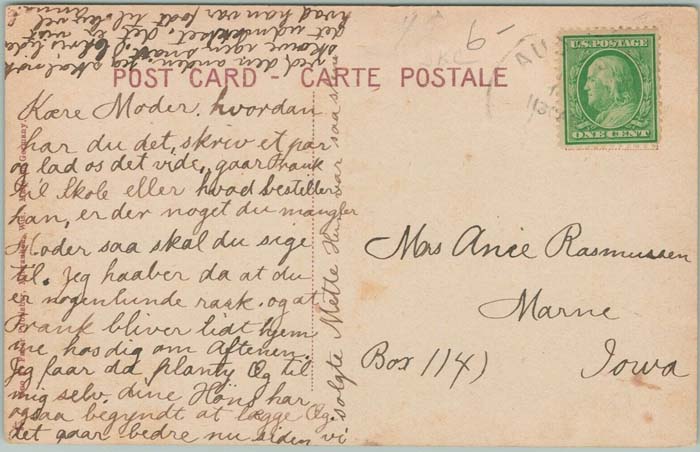 POST CARD - CARTE POSTALE
U.S. POSTAGE
ONE CENT
6-
Kære Moder. hvordan
har du det, skriv et par
og lad os det vide, gaar Frank
til Skole eller hvad bestiller
han, er der noget du mangler
Moder saa skal du sige
til. Jeg haaber da at du
er nogenlunde rask. og at
Frank bliver lidt hjem
me hos dig om Aftenen.
Jeg faar da planty Æg til
mig selv. dine Höns har
ogsaa begyndt at lægge Æg.
det gaar bedre nu siden vi
solgte Mette Hun var saa
ved den anden. jeg skal nok
skrive igen snart
det
hvad han var født til
Mrs Anie Rasmussen
Marne
Box 114)
Iowa
Germany